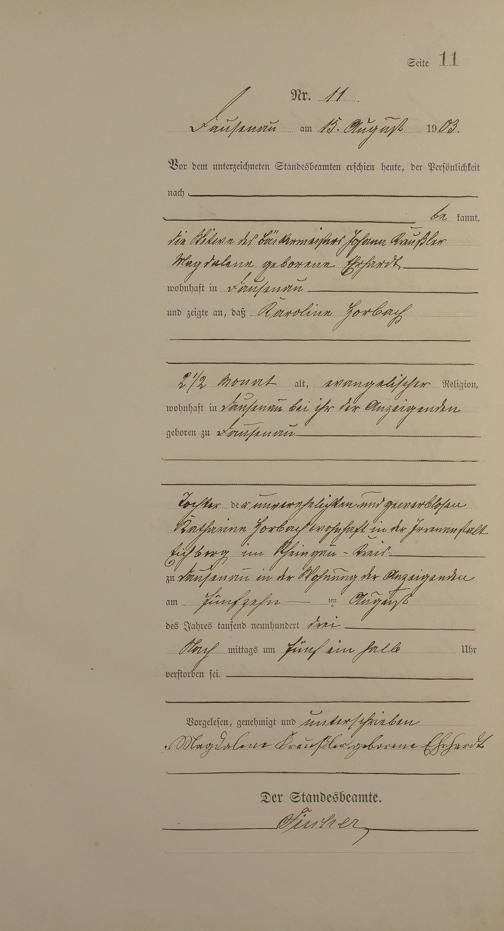 Seite 11
Nr. 11.
Dausenau am 15. August 1903.
Vor dem unterzeichneten Standesbeamten erschien heute, der Persönlichkeit
nach
be kannt,
die Witwe des Bäckermeisters Johann Kreußler
Magdalene geborene Ehrhardt
wohnhaft in Dausenau
und zeigte an, daß Karoline Horbach
2 1/2 Monat alt, evangelischer Religion,
wohnhaft in Dausenau bei ihr der Anzeigenden
geboren zu Dausenau
Tochter der unverehelichten und gewerblosen
Katharine Horbach wohnhaft in der Irrenanstalt
Eichberg im Rheingau-Kreis
zu Dausenau in der Wohnung der Anzeigenden
am fünfzehn ten August
des Jahres tausend neunhundert drei
Nach mittags um fünf ein halb Uhr
verstorben sei.
Vorgelesen, genehmigt und unterschrieben
Magdalene Kreußler geborene Ehrhardt
Der Standesbeamte.
Fischer